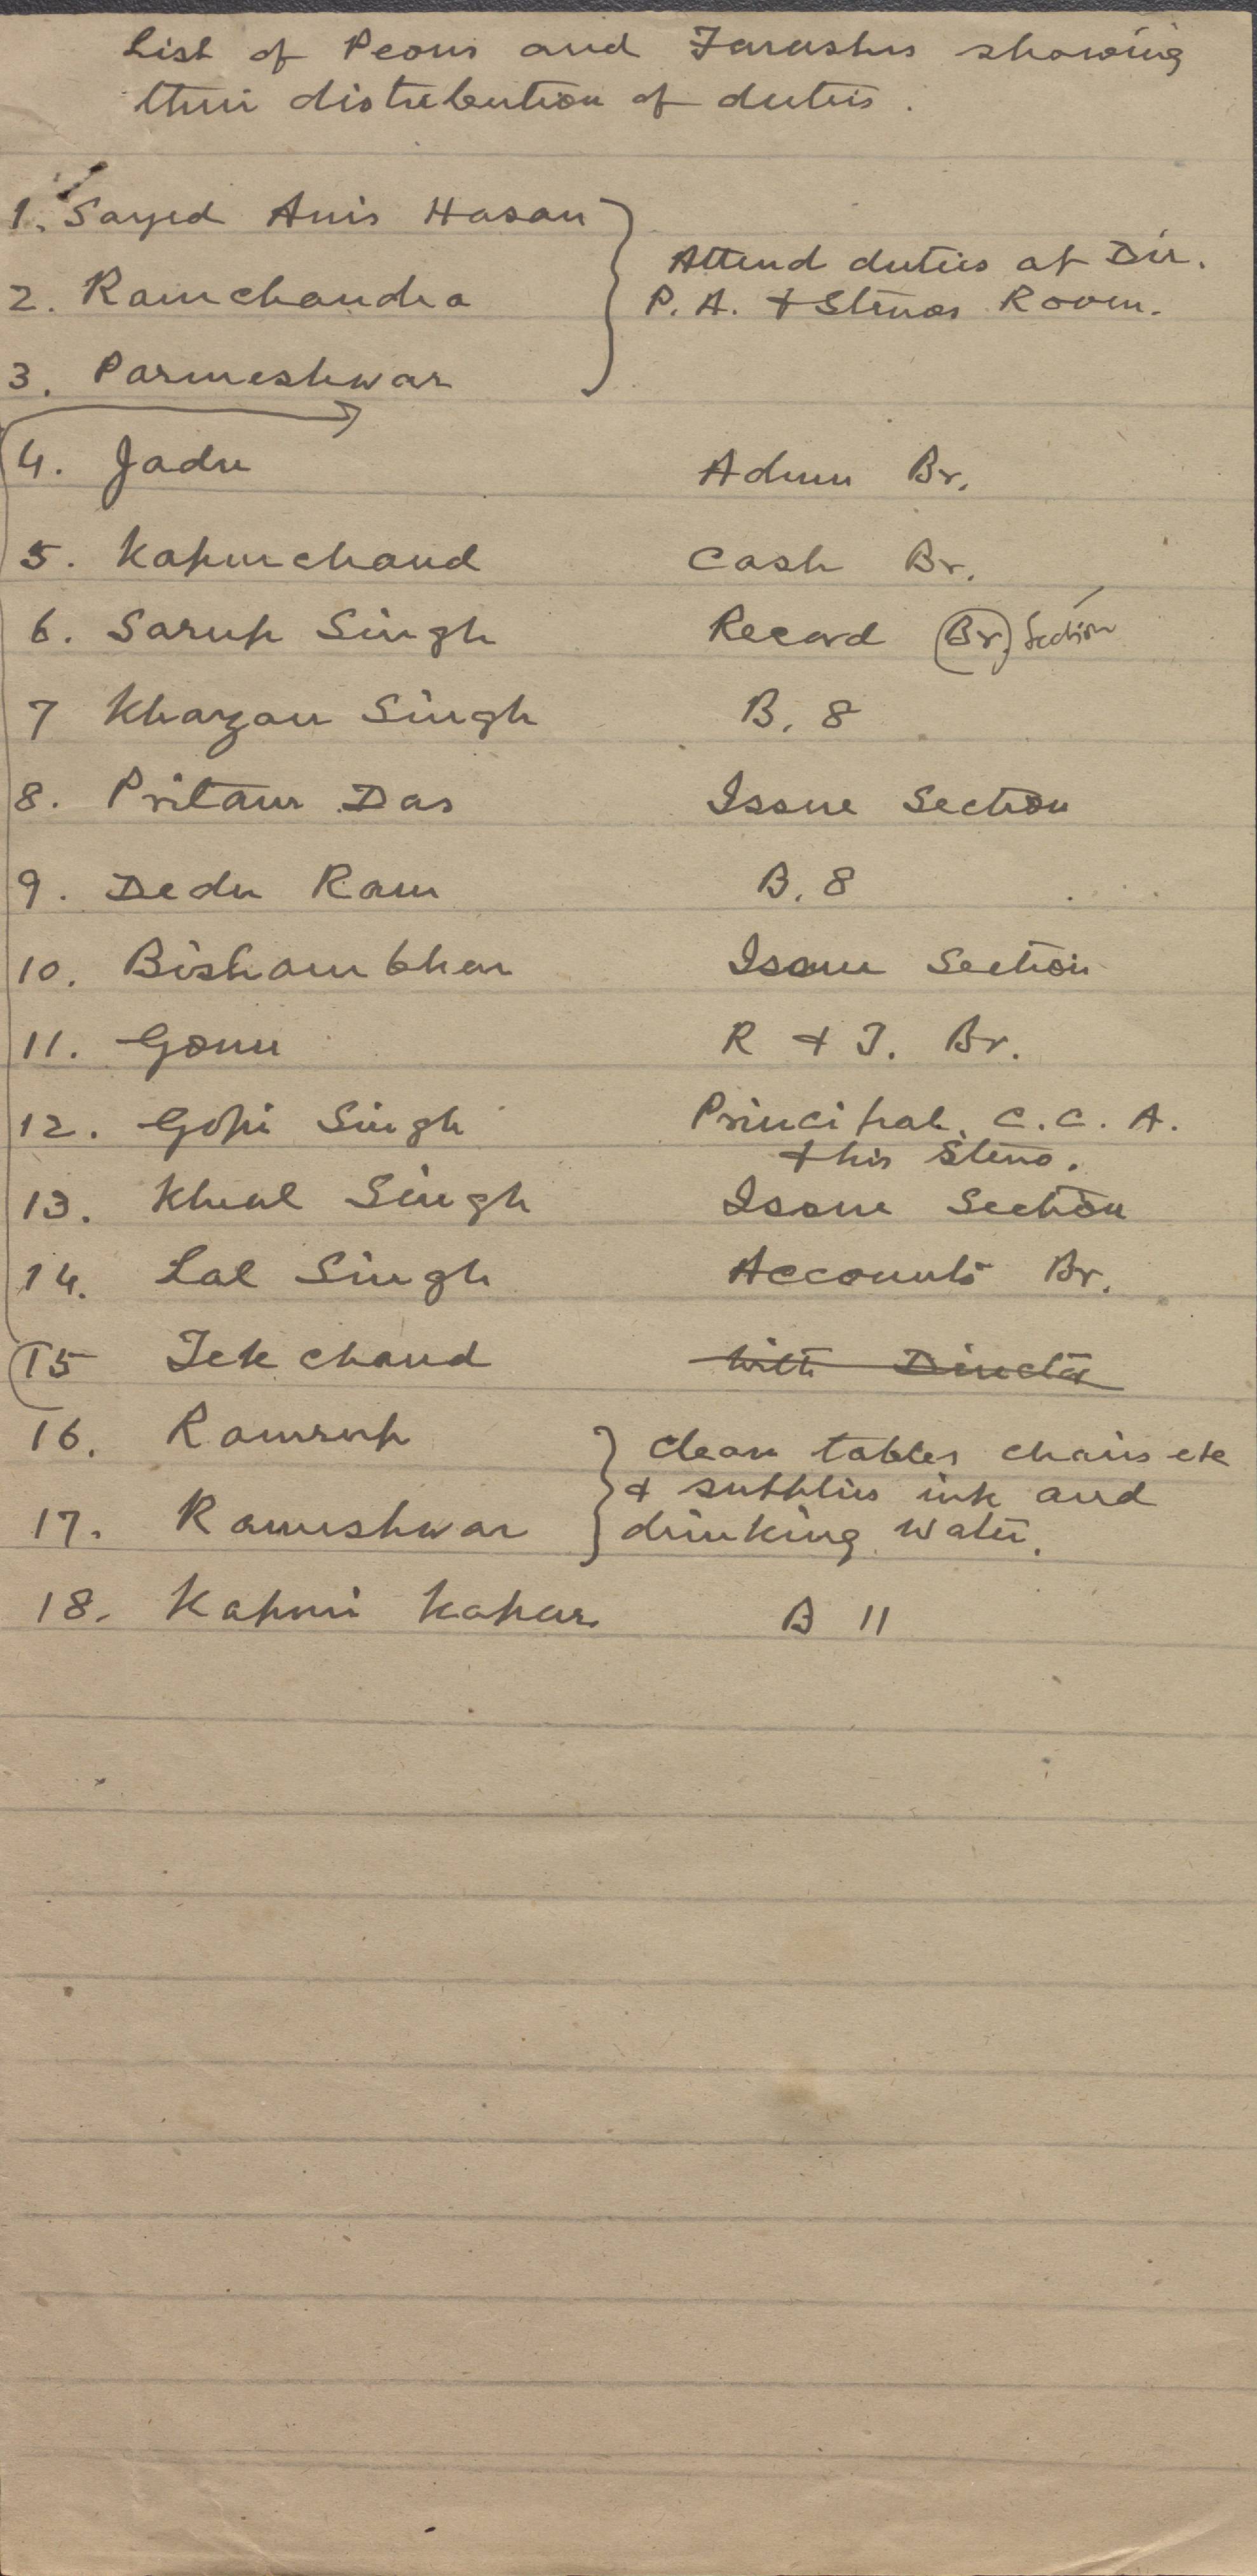 List of Peons and Farashes showing
their distribution of duties.
1. Sayed Anis Hasan
2. Ramchandra
3. Parmeshwar
Attend duties at Dir.
P. A. & Stenos Room.
4. Jadu Admn Br.
5. Kapurchand Cash Br.
6. Sarup Singh Record Br. Section
7 Khazan Singh B. 8
8. Pritam Das Issue Section
9. Dedu Ram B. 8
10. Bishambhar Issue Section
11. Gonu R & I. Br.
12. Gopi Singh Principal, C. C. A.
& his Steno.
13. Singh Issue Section
14. Lal Singh Accounts Br.
15 Tek chand with Director
16. Ramrup
17. Rameshwar
clean tables chairs etc
& supplies ink and
drinking water.
18. Kahar B 11